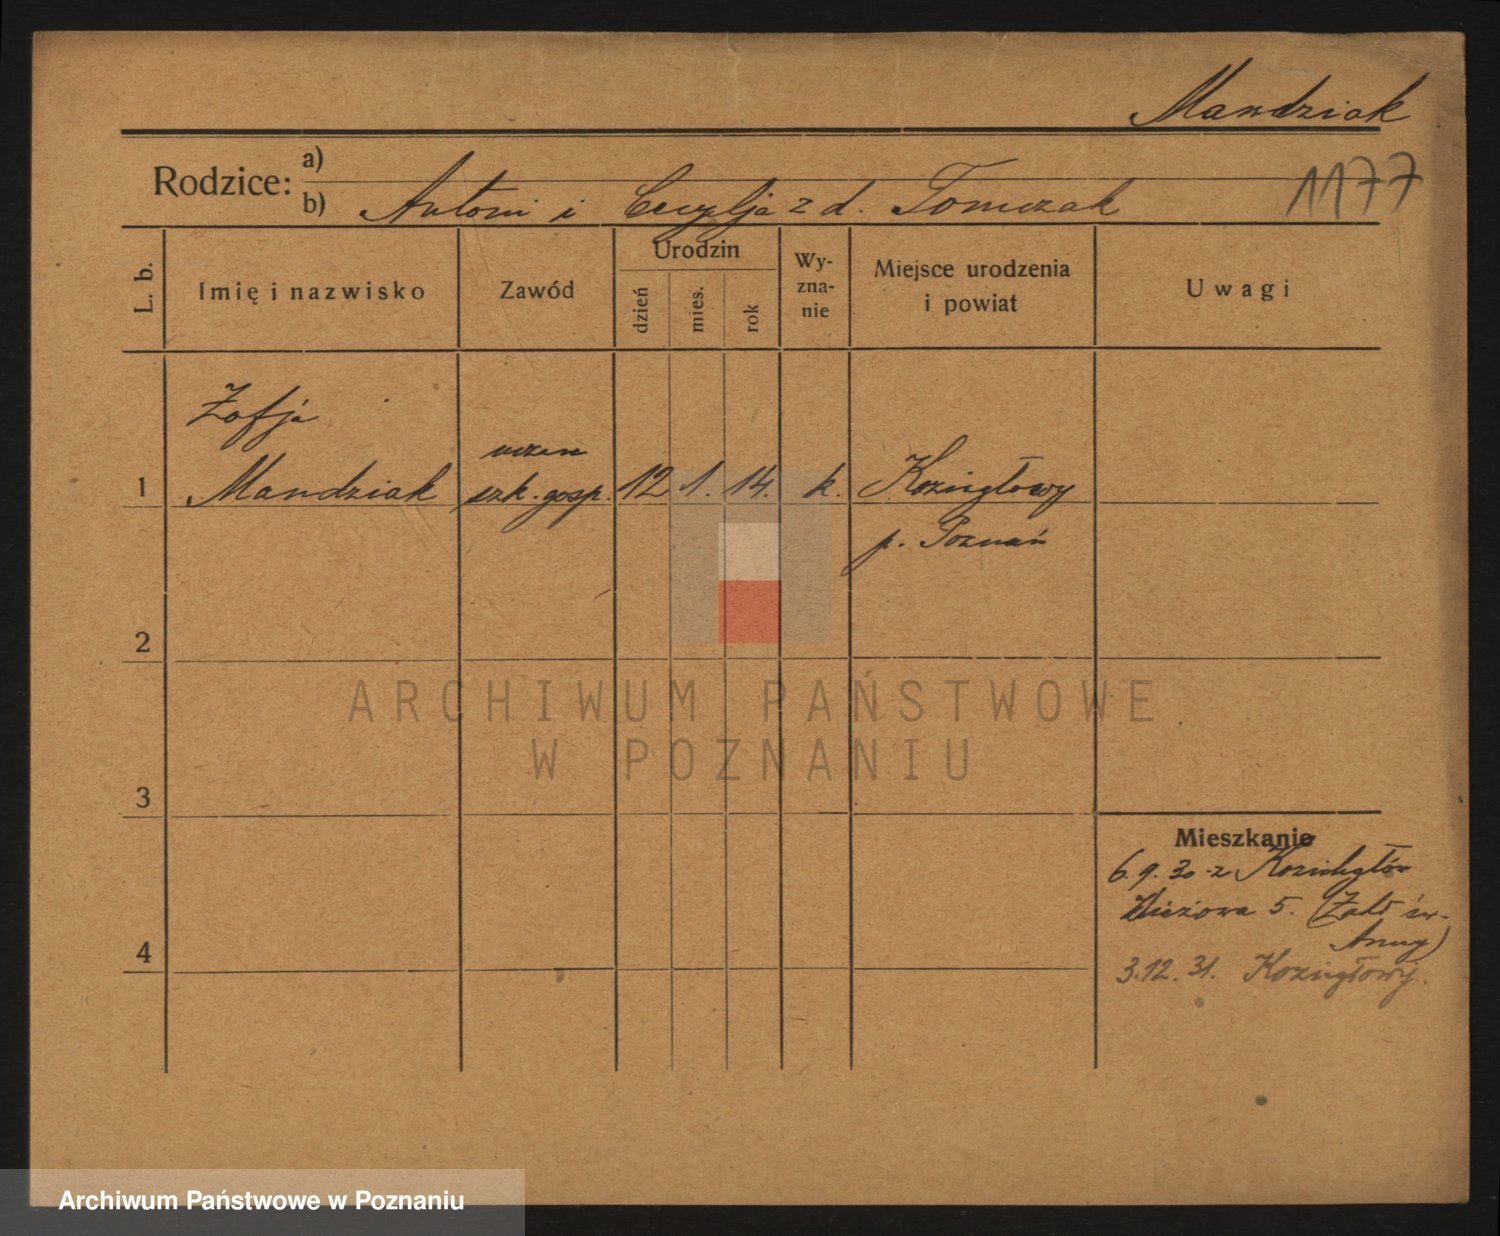 Mandziak
1177
Rodzice: a)
b) Antoni i Cecylja z d. Tomczak
L. b.
Imię i nazwisko
Zawód
Urodzin
dzień
mies.
rok
Wy-
zna-
nie
Miejsce urodzenia
i powiat
Uwagi
Zofja
uczen
1 Mandziak szk. gosp. 12 1. 14. k. Kozięgłowy
p. Poznań
2
3
4
ARCHIWUM PAŃSTWOWE
W POZNANIU
Mieszkanie
6.9.30 z Kozichgłów
5. (Zakł św.
Anny)
3.12.31. Kozięgłowy.
Archiwum Państwowe w Poznaniu